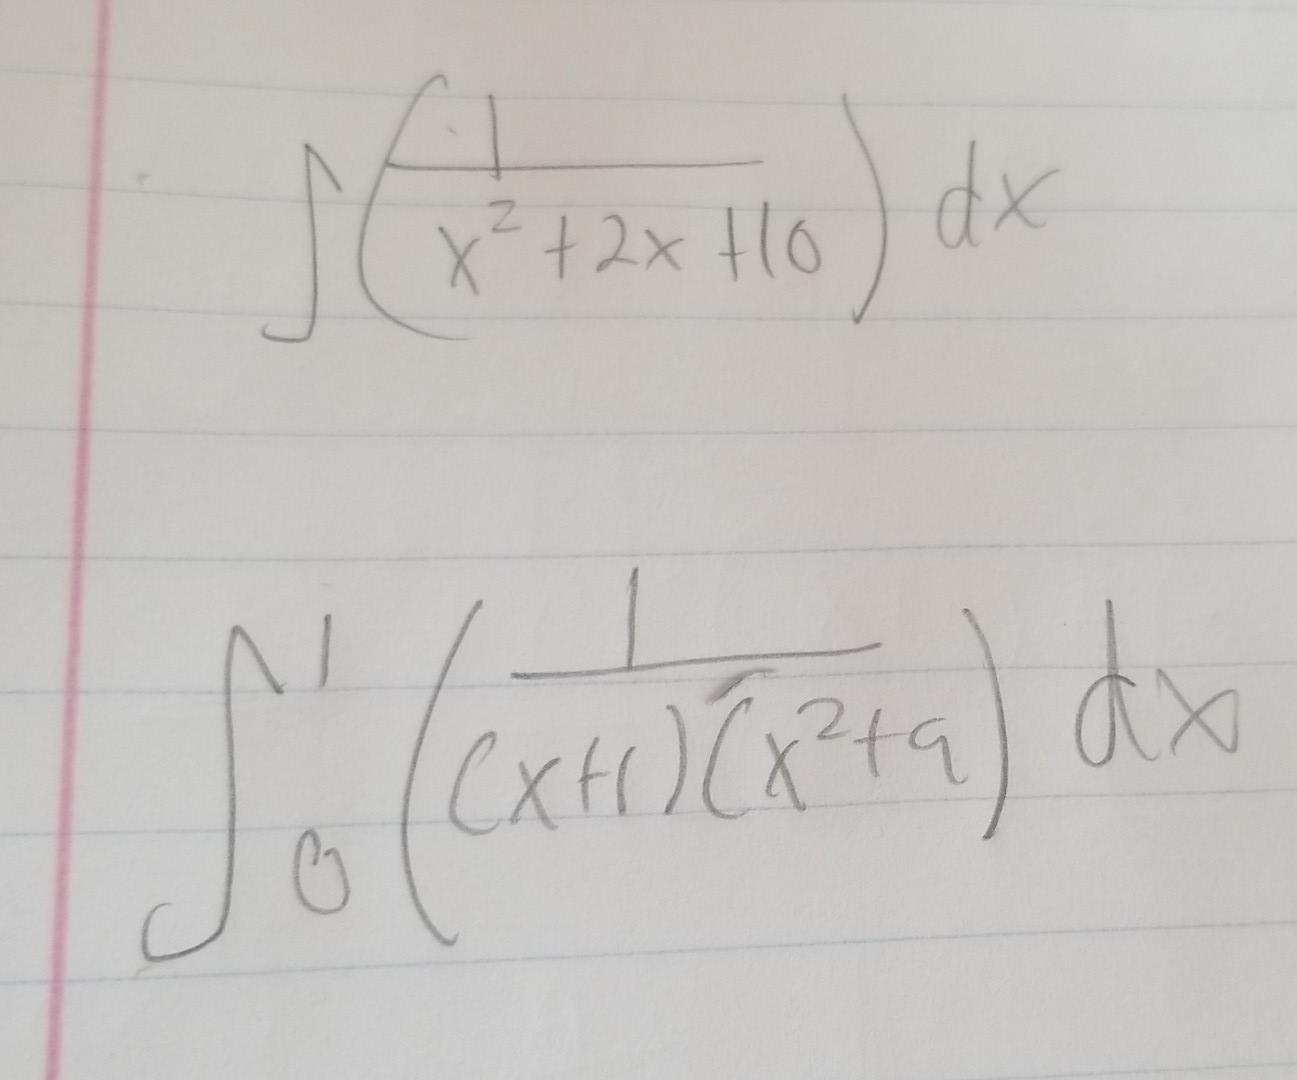 ∫(1/(x²+2x+10)) dx
∫₀¹(1/((x+1)(x²+9)) dx